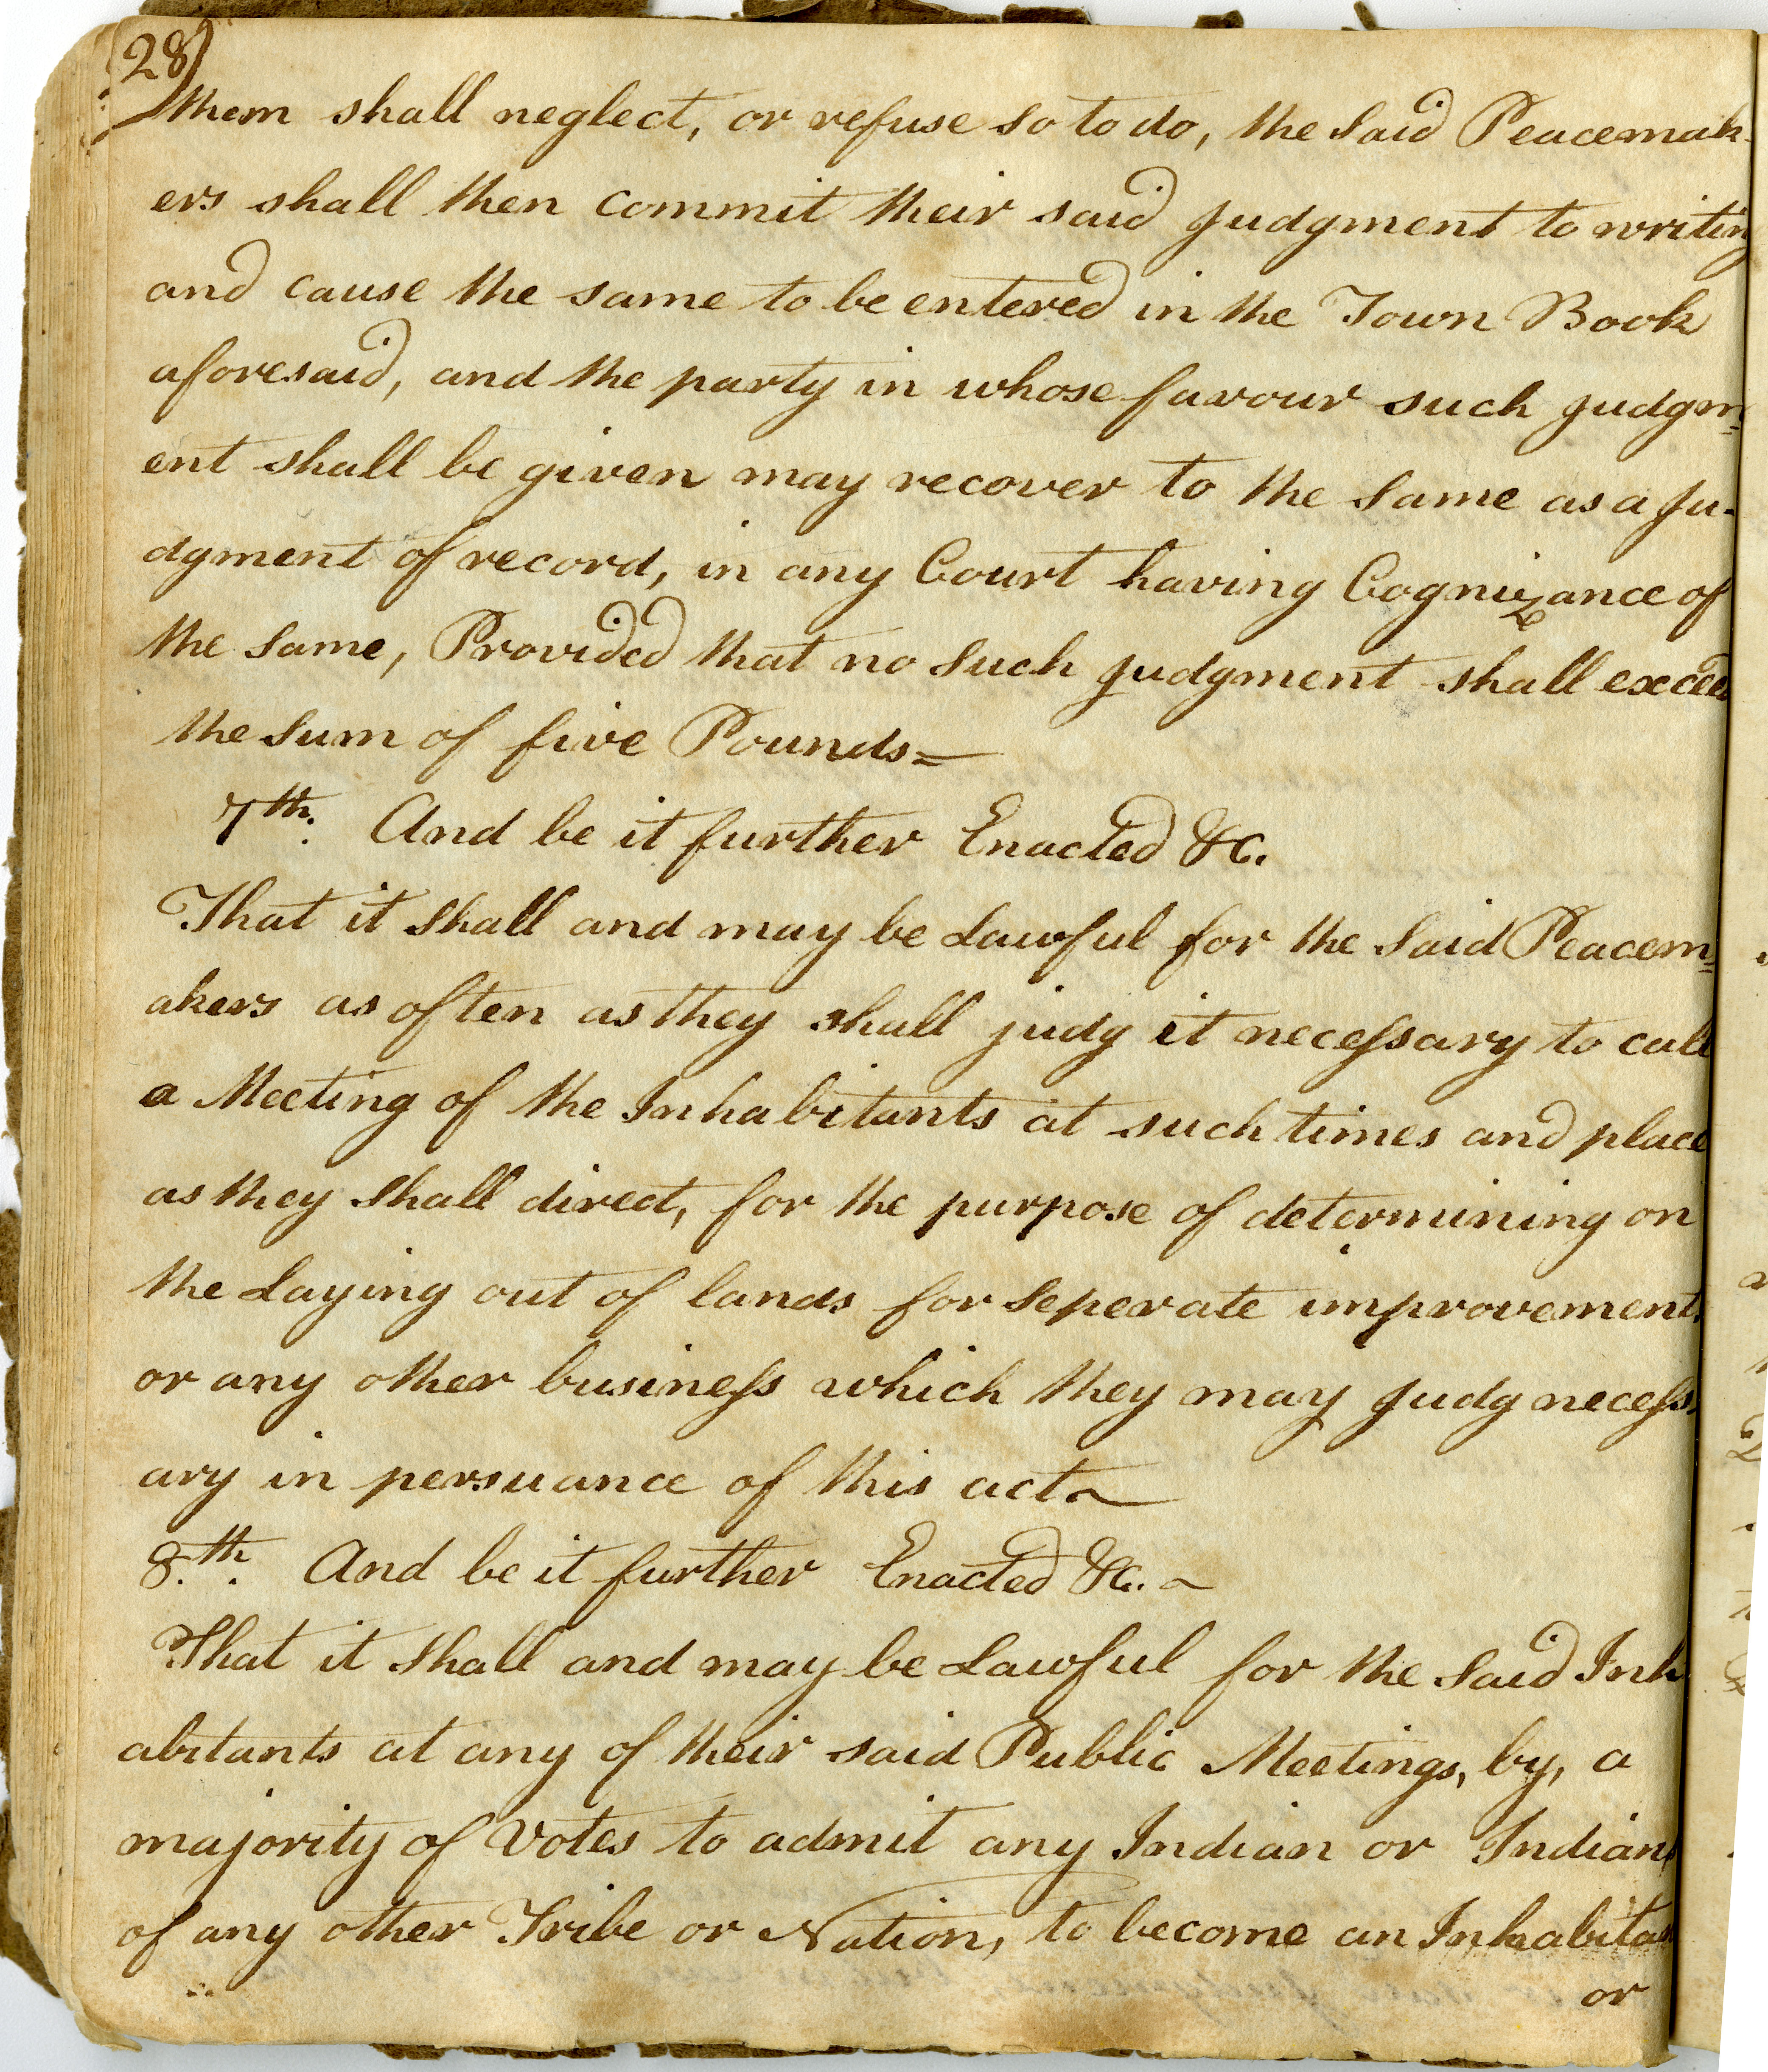 28)
them shall neglect, or refuse so to do, the said Peacemak-
ers shall then commit their said judgment to writing
and cause the same to be entered in the Town Book
aforesaid, and the party in whose favour such judgm=
ent shall be given may recover to the same as a ju-
dgment of record, in any Court having Cognizance of
the same, Provided that no such judgment shall exceed
the sum of five Pounds=
7th. And be it further Enacted &c.
That it shall and may be Lawful for the said Peacem=
akers as often as they shall judg it necessary to call
a Meeting of the Inhabitants at such times and place
as they shall direct, for the purpose of determining on
the Laying out of lands for seperate improvement,
or any other business which they may judg necess,
ary in persuance of this act~
8.th. And be it further Enacted &c. ~
That it shall and may be Lawful for the said Inh
abitants at any of their said Public Meetings, by, a
majority of Votes to admit any Indian or Indians
of any other Tribe or Nation, to become an Inhabitan
or